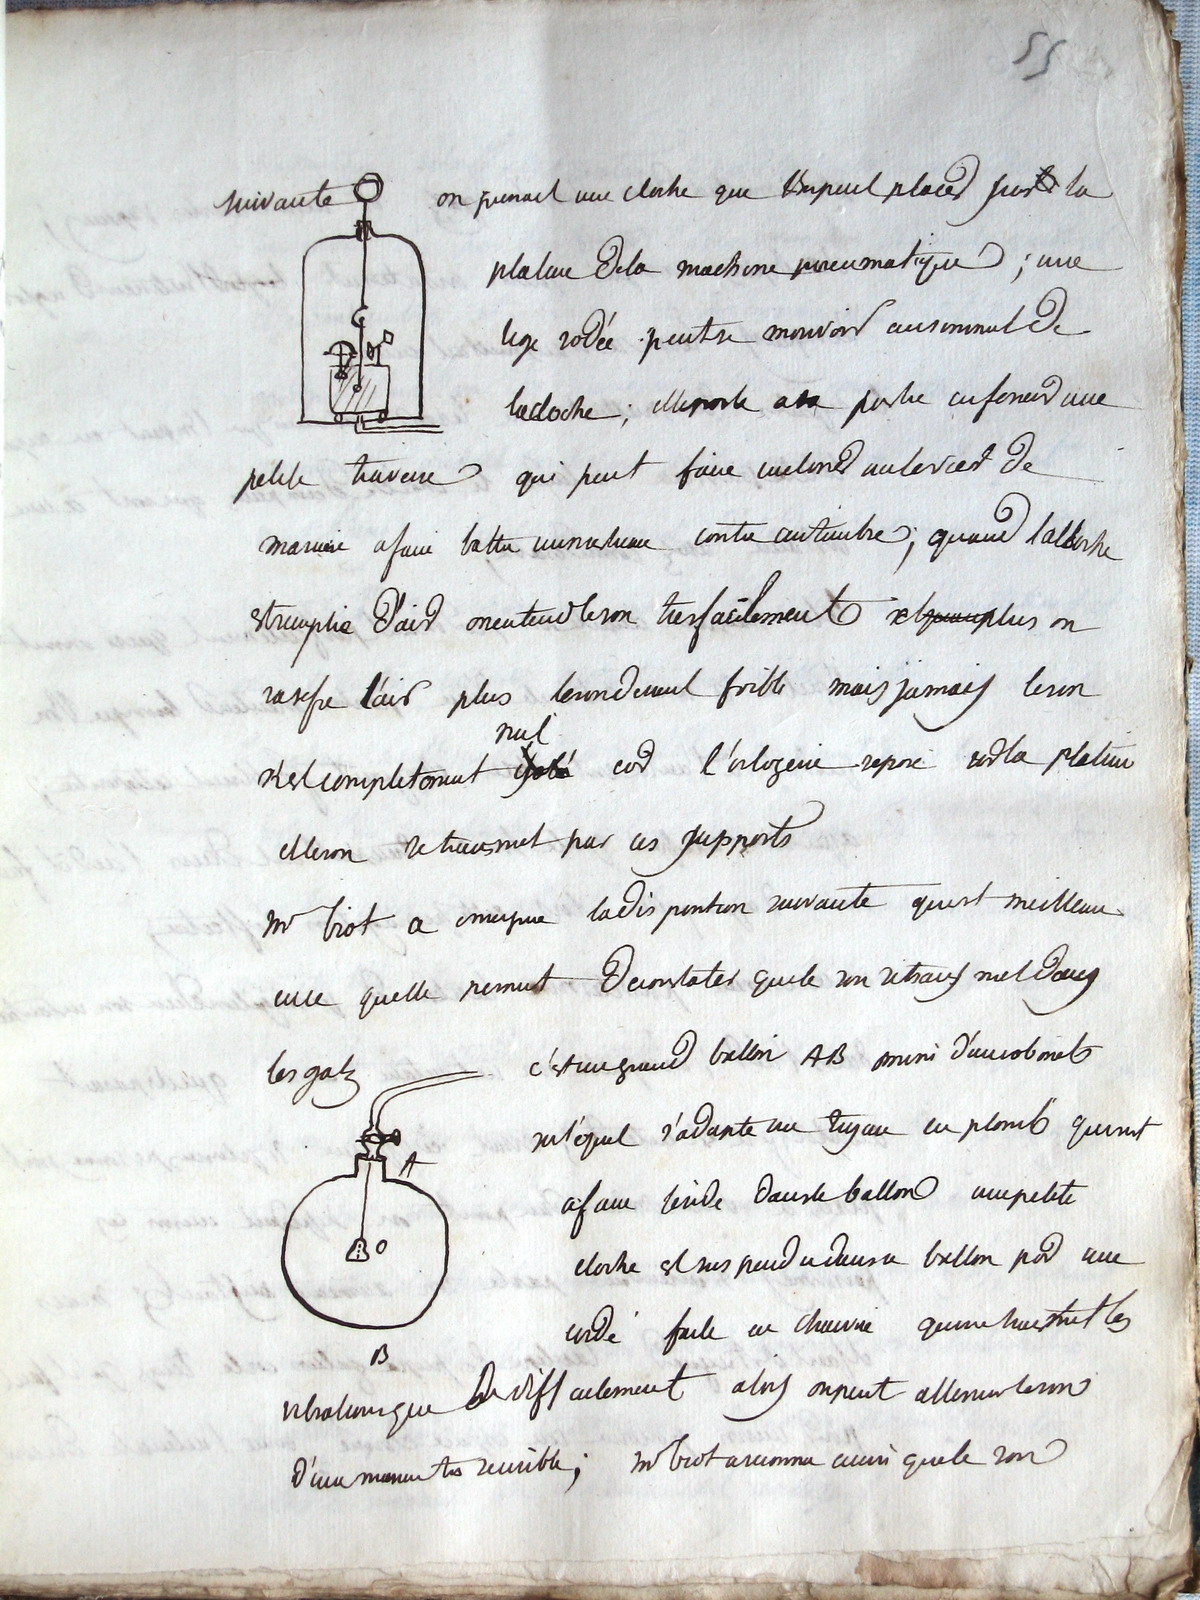 55
suivante on prenait une cloche que l'on peut placer sur la
platine de la machine pneumatique ; une
tige rodée peut se mouvoir au sommet de
la cloche ; elle porte a sa partie enfoncer une
petite traverse qui peut faire ou lever de
maniere a faire battre un marteau contre un timbre ; quand la cloche
est remplie d'air on entend le son tres facilement plus on
rarefie l'air plus le son devient foible mais jamais le son
n'est completement nul car l'orlogerie repose sur la platine
et le son se transmet par ces supports
Mr biot a employe la disposition suivante qui est meilleure
en ce quelle permet de constater que le son se transmet dans
les gatz c'est un grand ballon AB muni d'un robinet
sur lequel s'adapte un tuyau en plomb qui sert
A
a faire le vide dans le ballon une petite
O
cloche est suspendue dans ce ballon par une
corde faite en chanvre qui ne transmet les
B
vibrations que difficilement alors on peut attenuer le son
d'une maniere tres sensible ; Mr biot a reconnu aussi que le son